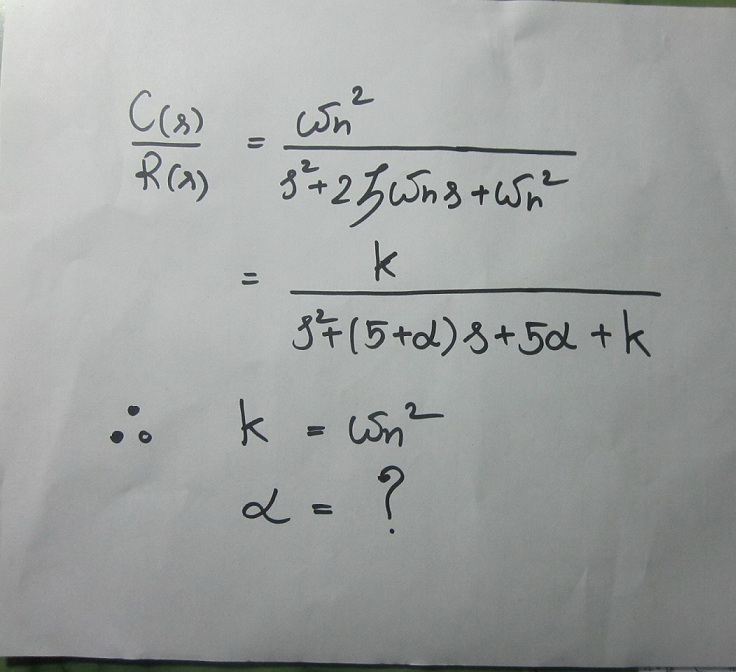 C(s)/R(s) = ωn²/(s²+2ξωns+ωn²)
= k/(s²+(5+α)s+5α+k)
∴ k = ωn²
α = ?